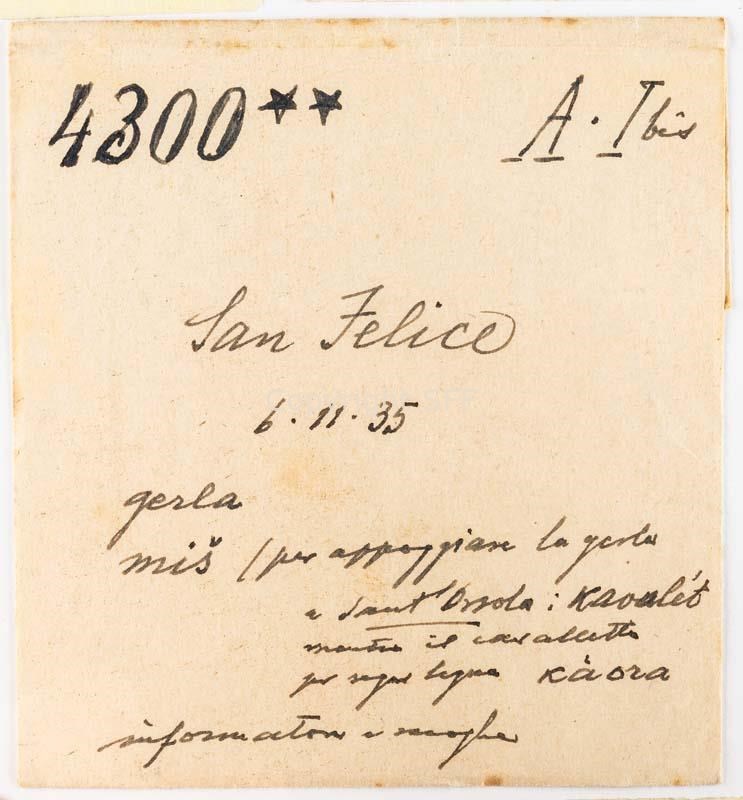 4300** A. I bis
San Felice
6.11.35
gerla
miš (per appoggiare la gerla
a Sant'Orsola: Kavalét
mentre il cavalletto
per segar legna kàora
informatore e moglie